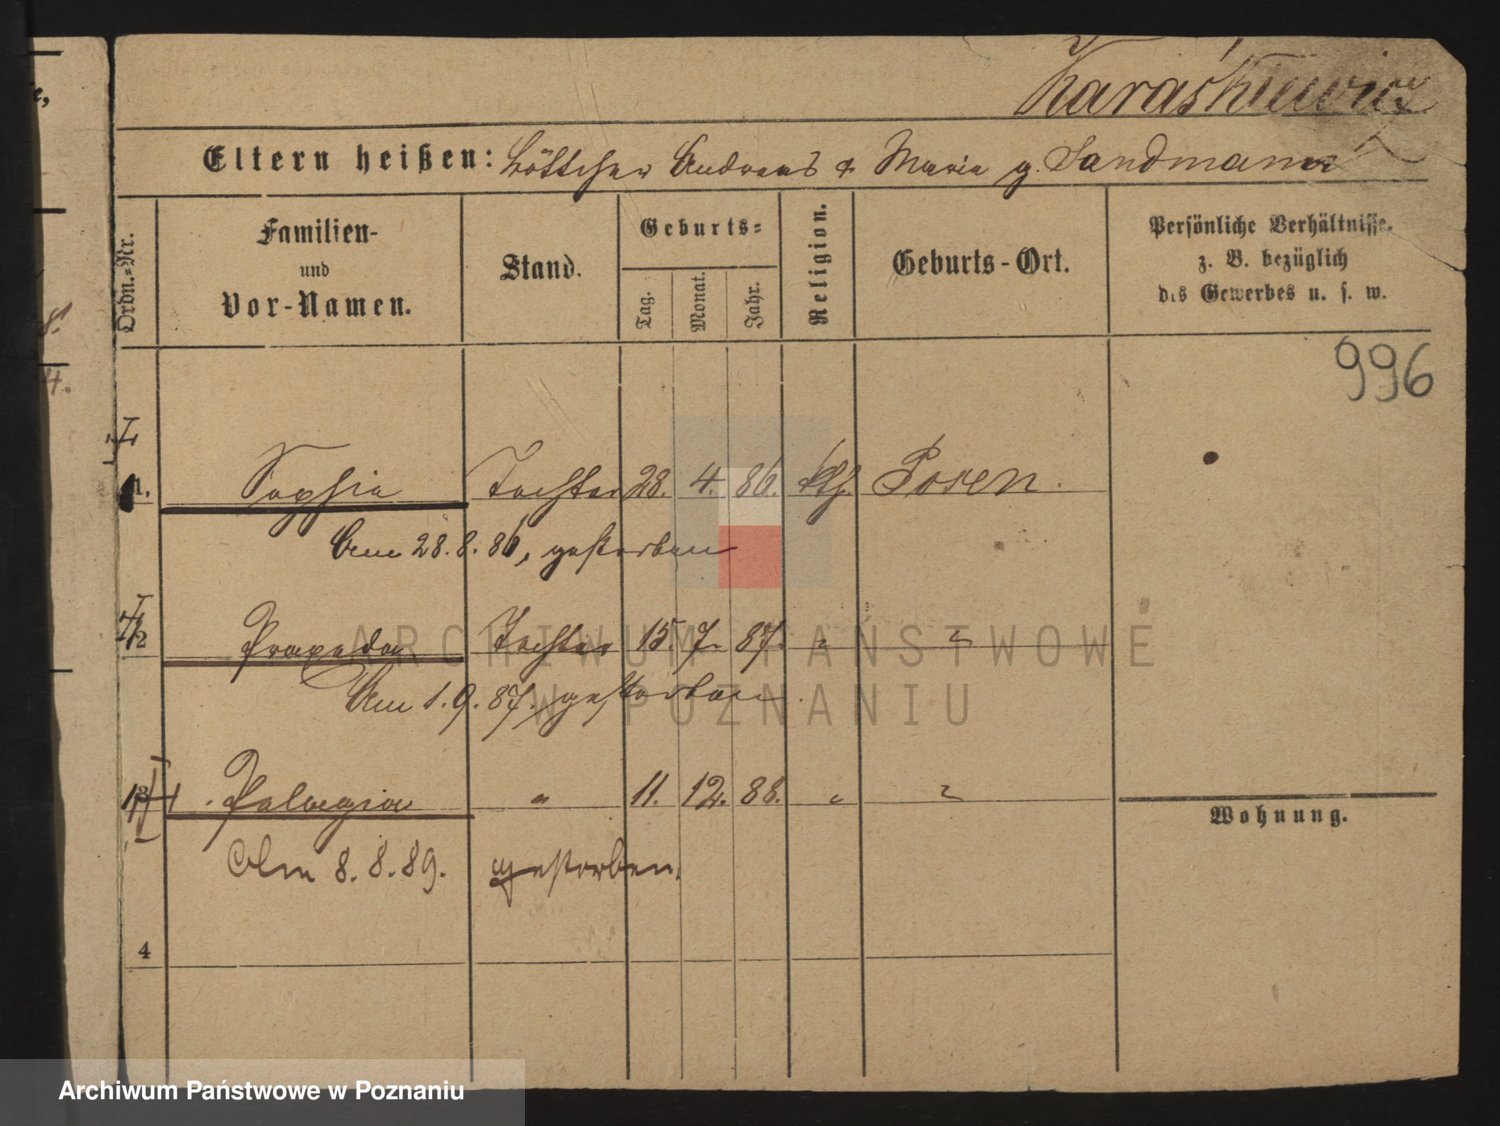 Karaśkiewicz
Eltern heißen: Böttcher Andreas & Marie g. Sandmann
Ordn.-Nr.
Familien- und Vor-Namen.
Stand.
Geburts-
Tag.
Monat.
Jahr.
Religion.
Geburts-Ort.
Persönliche Verhältnisse.
z. B. bezüglich
des Gewerbes u. s. w.
996
1. Sophia Tochter 28. 4. 86. kth. Posen.
Am 28. 8. 86, gestorben
2 Praxeda Tochter 15. 7. 87. " "
Am 1. 9. 87. gestorben
3 Pelagia " 11. 12. 88. " "
Am 8. 8. 89. gestorben.
Wohnung.
4
ARCHIWUM PAŃSTWOWE
W POZNANIU
Archiwum Państwowe w Poznaniu